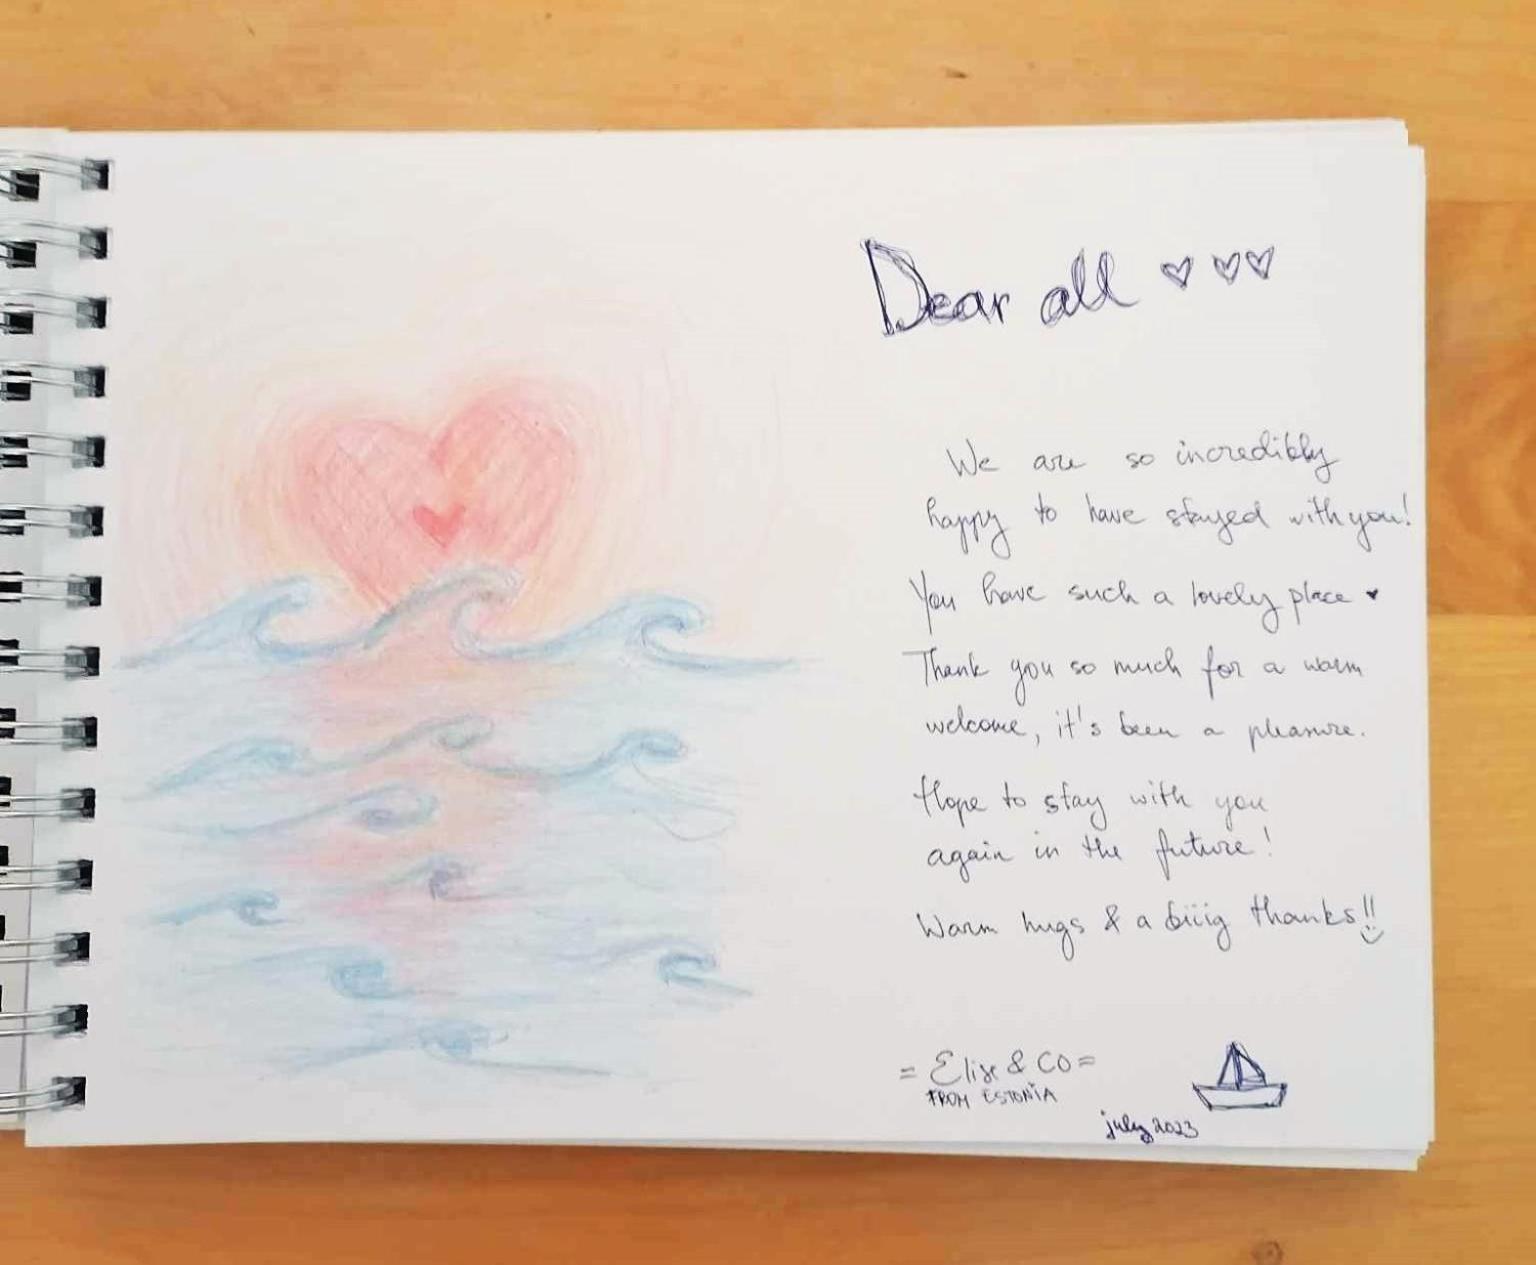 Dear all ♡ ♡♡
We are so incredibly
happy to have stayed with you!
You have such a lovely place ♥
Thank you so much for a warm
welcome, it's been a pleasure.
Hope to stay with you
again in the future!
Warm hugs & a biiig thanks!!
= Elise & CO =
FROM ESTONIA
july 2023